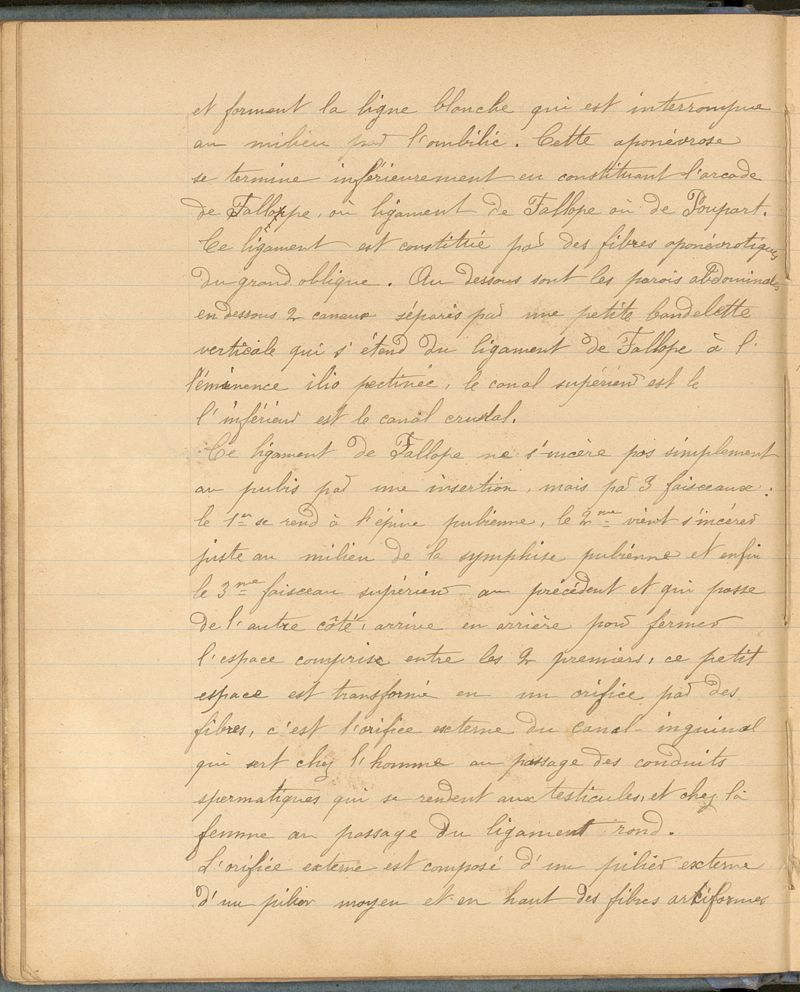 et forment la ligne blanche qui est interrompue
au milieu par l'ombilic. Cette aponévrose
se termine inférieurement en constituant l'arcade
de Fallope, où ligament de Fallope où de Poupart.
Ce ligament est constitué par des fibres aponévrotiques
du grand oblique. Au dessous sont les parois abdominales
en dessous 2 canaux séparés par une petite bandelette
verticale qui s'étend du ligament de Fallope à l'
l'éminence ilio pectinée, le canal supérieur est le
l'inférieur est le canal crural.
Ce ligament de Fallope ne s'incère pas simplement
au pubis par une insertion, mais par 3 faisceaux.
le 1er se rend à l'épine pubienne, le 2me vient s'incérer
juste au milieu de la symphise pubienne et enfin
le 3me faisceau supérieur au précédent et qui passe
de l'autre côté, arrive en arrière pour fermer
l'espace comprise entre les 2 premiers, ce petit
espace est transformé en un orifice par des
fibres, c'est l'orifice externe du canal-inguinal
qui sert chez l'homme au passage des conduits
spermatiques qui se rendent aux testicules, et chez la
femme au passage du ligament rond.
L'orifice externe est composé d'un pilier externe
d'un pilier moyen et en haut des fibres arciformes